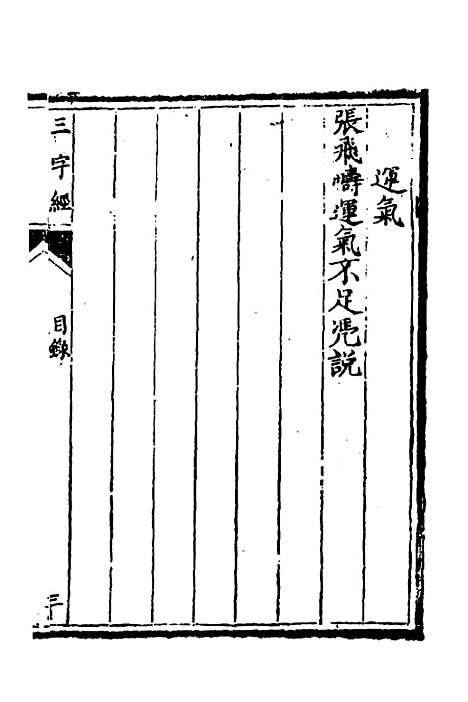 運氣
張飛疇運氣不足凭說
三字經
目錄
三